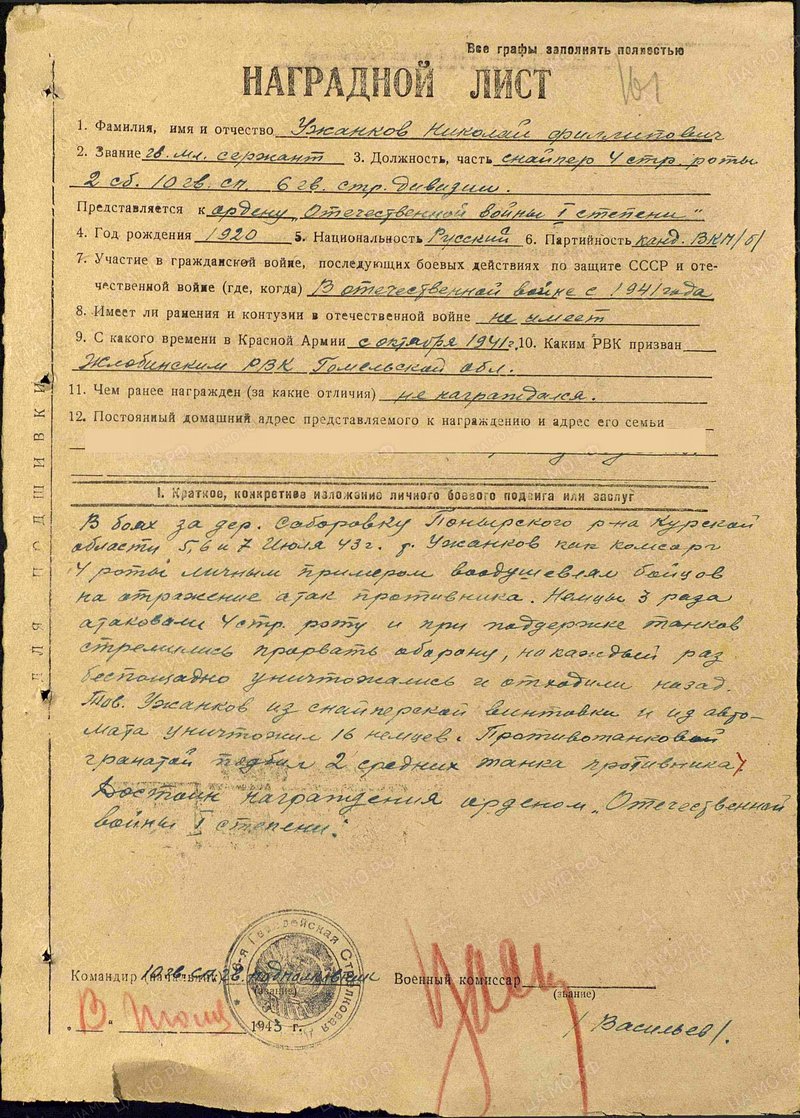 Все графы заполнять полностью
НАГРАДНОЙ ЛИСТ
161
1. Фамилия, имя и отчество Ужанков Николай Филлипович
2. Звание гв. мл. сержант 3. Должность, часть снайпер 4 стр. роты
2 сб. 10 гв. сп 6 гв. стр. дивизии.
Представляется к ордену „Отечественной войны I степени"
4. Год рождения 1920 5. Национальность Русский 6. Партийность канд. ВКП/б/
7. Участие в гражданской войне, последующих боевых действиях по защите СССР и оте-
чественной войне (где, когда) В отечественной войне с 1941 года
8. Имеет ли ранения и контузии в отечественной войне не имеет
9. С какого времени в Красной Армии с октября 1941 г. 10. Каким РВК призван
Жлобинским РВК Гомельской обл.
11. Чем ранее награжден (за какие отличия) не награждался.
12. Постоянный домашний адрес представляемого к награждению и адрес его семьи
ДЛЯ ПОДШИВКИ
I. Краткое, конкретное изложение личного боевого подвига или заслуг
В боях за дер. Саборовку Понырского р-на Курской
области 5, 6 и 7 Июля 43 г. т. Ужанков как комсорг
4 роты личным примером воодушевлял бойцов
на отражение атак противника. Немцы 3 раза
атаковали 4 стр. роту и при поддержке танков
стремились прорвать оборону, но каждый раз
беспощадно уничтожались и отходили назад.
Тов. Ужанков из снайперской винтовки и из авто-
мата уничтожил 16 немцев. Противотанковой
гранатой подбил 2 средних танка противника.
Достоин награждения орденом „Отечественной
войны I степени.
Командир (начальник) 10 гв. сп гв. подполковник Военный комиссар
(звание) (звание)
1943 г.
/Васильев/.
Гвардейская Стрелковая
ЦАМО.РФ